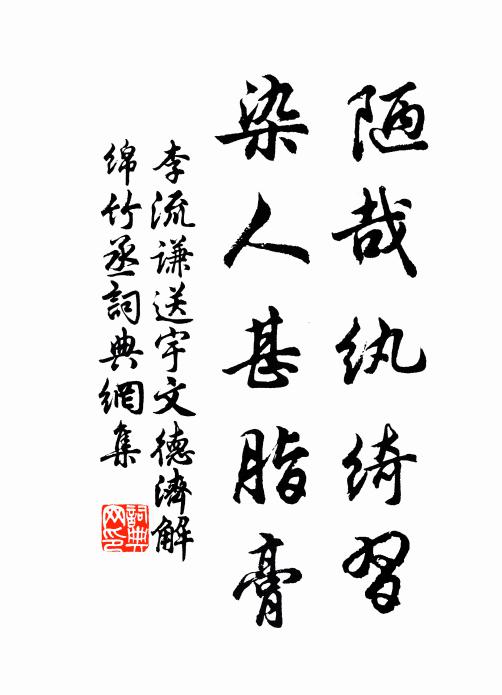 陋哉纨绮習
染人甚脂膏
李流谦送宇文德濟解
绵竹丞詞典網集
詞典
网印